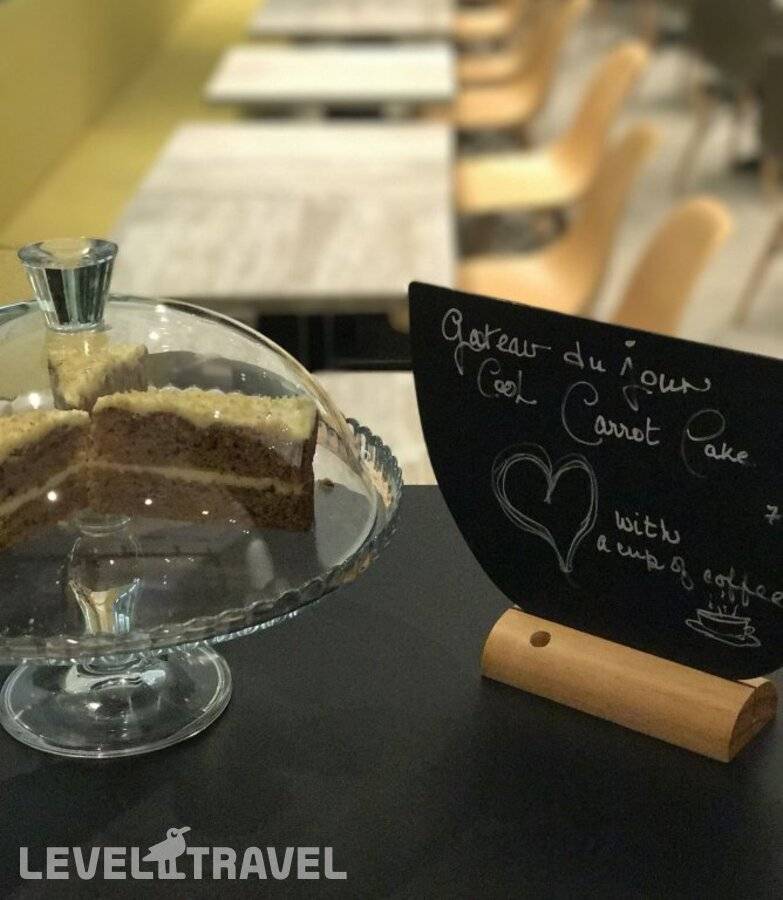 Gateau du jour
Cool
Carrot Cake
7
with
a cup of coffee
LEVEL TRAVEL